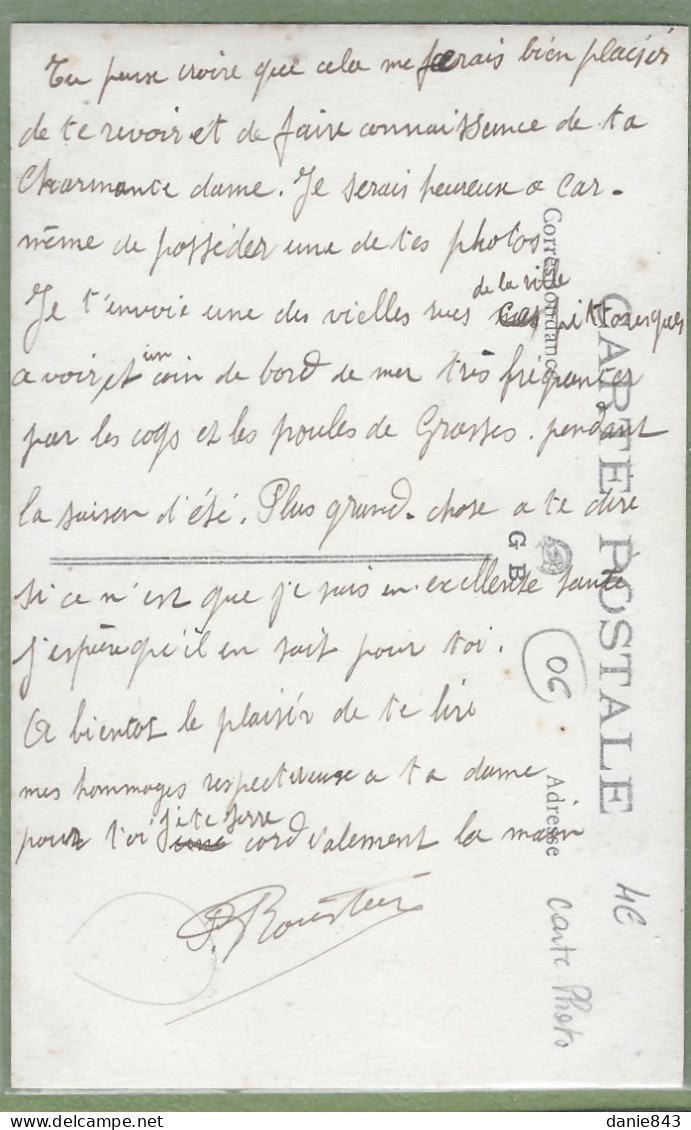 Tu peux croire que cela me ferais bien plaisir
de te revoir et de faire connaissance de ta
Charmante dame. Je serais heureux a car-
même de posséder une de tes photos
Je t'envoie une des vielles rues de la ville pittoresques
a voir et un coin de bord de mer très fréquanter
par les coqs et les poules de Grasses. pendant
la saison d'été. Plus grand-chose a te dire
si ce n'est que je suis en excellente santé
j'espère qu'il en soit pour toi.
A bientot le plaisir de te lire
mes hommages respectueuse a ta dame
pour toi je te serre cordialement la main
CARTE POSTALE
Correspondance
Adresse
G B
06
4€
Carte Photo
danie843